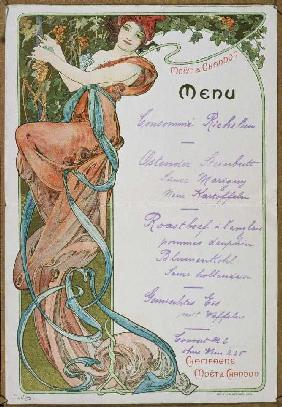 MOËT & CHANDON
MENU
Consommé Richelieu
Ostender Steinbutt
Sauce Margny
Neue Kartoffeln
Roastbeef à l'anglaise
pommes dauphin
Blumenkohl
Sauce hollandaise
Gemischtes Eis
mit Waffeln
Couvert M 6
ohne Wein
CHAMPAGNE
MOËT & CHANDON